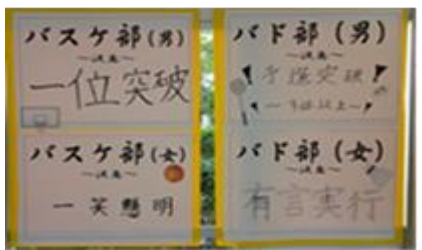 バスケ部(男)
〜決意〜
一位突破
バスケ部(女)
〜決意〜
一笑懸明
バド部(男)
〜決意〜
予選突破
バド部(女)
〜決意〜
有言実行